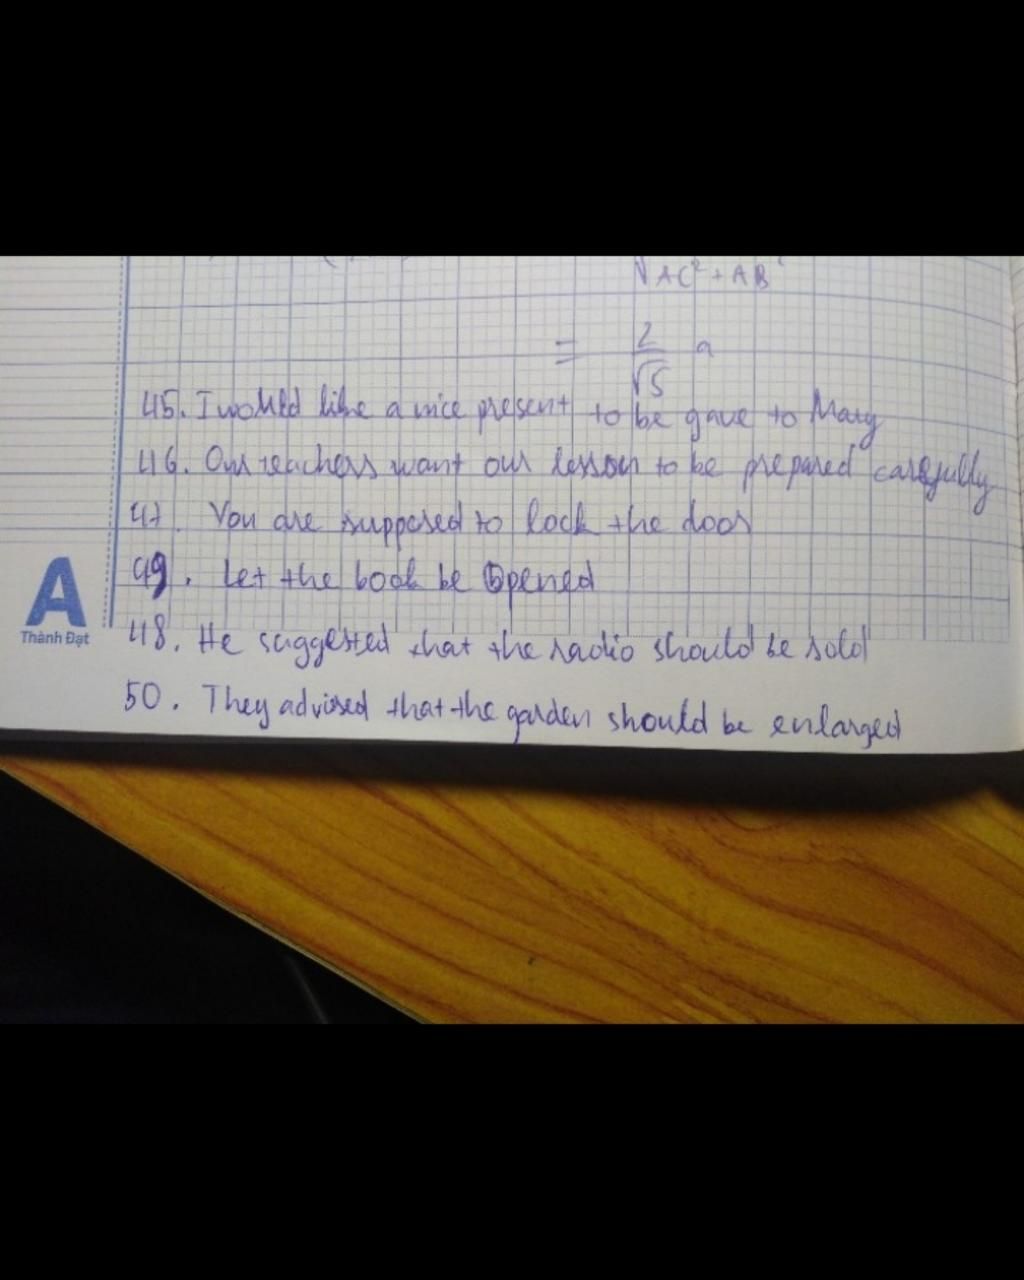 √AC² + AB
= 2/√5 a
45. I would like a nice present to be gave to Mary
46. Our teachers want our lesson to be prepared carefully
47. You are supposed to lock the door
49. Let the book be opened
48. He suggested that the radio should be sold
50. They advised that the garden should be enlarged
A
Thành Đạt